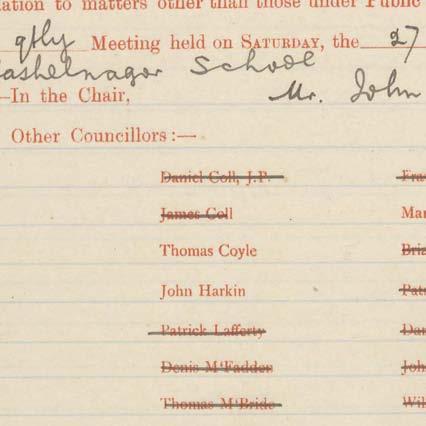 lation to matters other than those under Public
qtly Meeting held on SATURDAY, the 27
ashelnagor School
—In the Chair, Mr. John
Other Councillors:—
Daniel Coll, J.P.
James Coll
Thomas Coyle
John Harkin
Patrick Lafferty
Denis M'Fadden
Thomas M'Bride
Fra
Mar
Bria
Patr
Dan
John
Wil